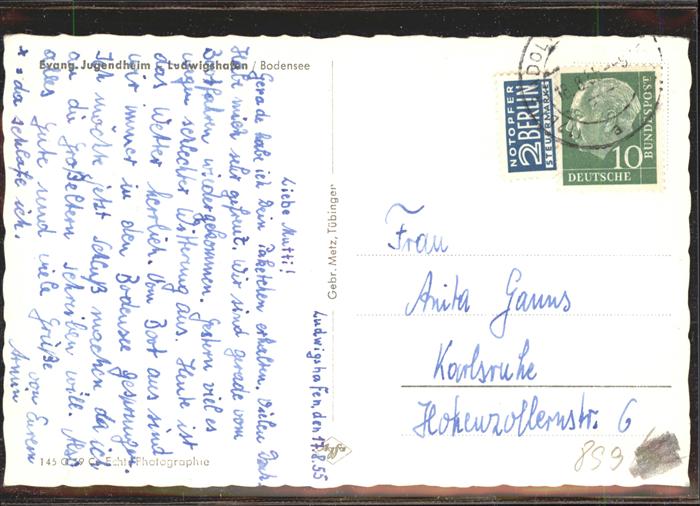 Evang. Jugendheim Ludwigshafen / Bodensee
Ludwigshafen, den 17.8.55
Liebe Mutti!
Gerade habe ich Dein Paketchen erhalten, Vielen Dank,
Habe mich sehr gefreut. Wir sind gerade vom
Bootfahren wiedergekommen. Gestern viel es
wegen schlechter Witterung aus. Heute ist
das Wetter herrlich. Vom Boot aus sind
wir immer in den Bodensee gesprungen.
Ich möchte jetzt Schluß machen da ich
an die Großeltern schreiben will. Also
alles Gute und viele Grüße von Eurem
Armin
x = da schlafe ich.
145 Echte Photographie
Gebr. Metz, Tübingen
NOTOPFER
2 BERLIN
STEUERMARKE
10
DEUTSCHE
BUNDESPOST
Frau
Anita Ganns
Karlsruhe
Hohenzollernstr. 6
859